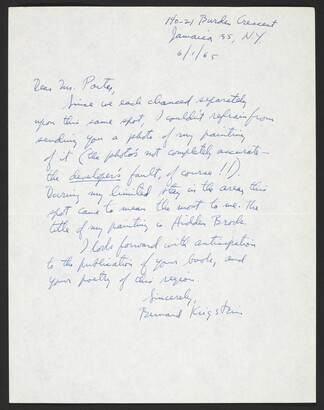 140-21 Burden Crescent
Jamaica 35, N.Y.
6/1/65
Dear Mr. Porter,
Since we each chanced separately
upon this same spot, I couldn't refrain from
sending you a photo of my painting
of it (the photo's not completely accurate-
the developer's fault, of course!!).
During my limited stay in the area this
spot came to mean the most to me. The
title of my painting is Hidden Brook.
I look forward with anticipation
to the publication of your book, and
your poetry of this region.
Sincerely,
Bernard